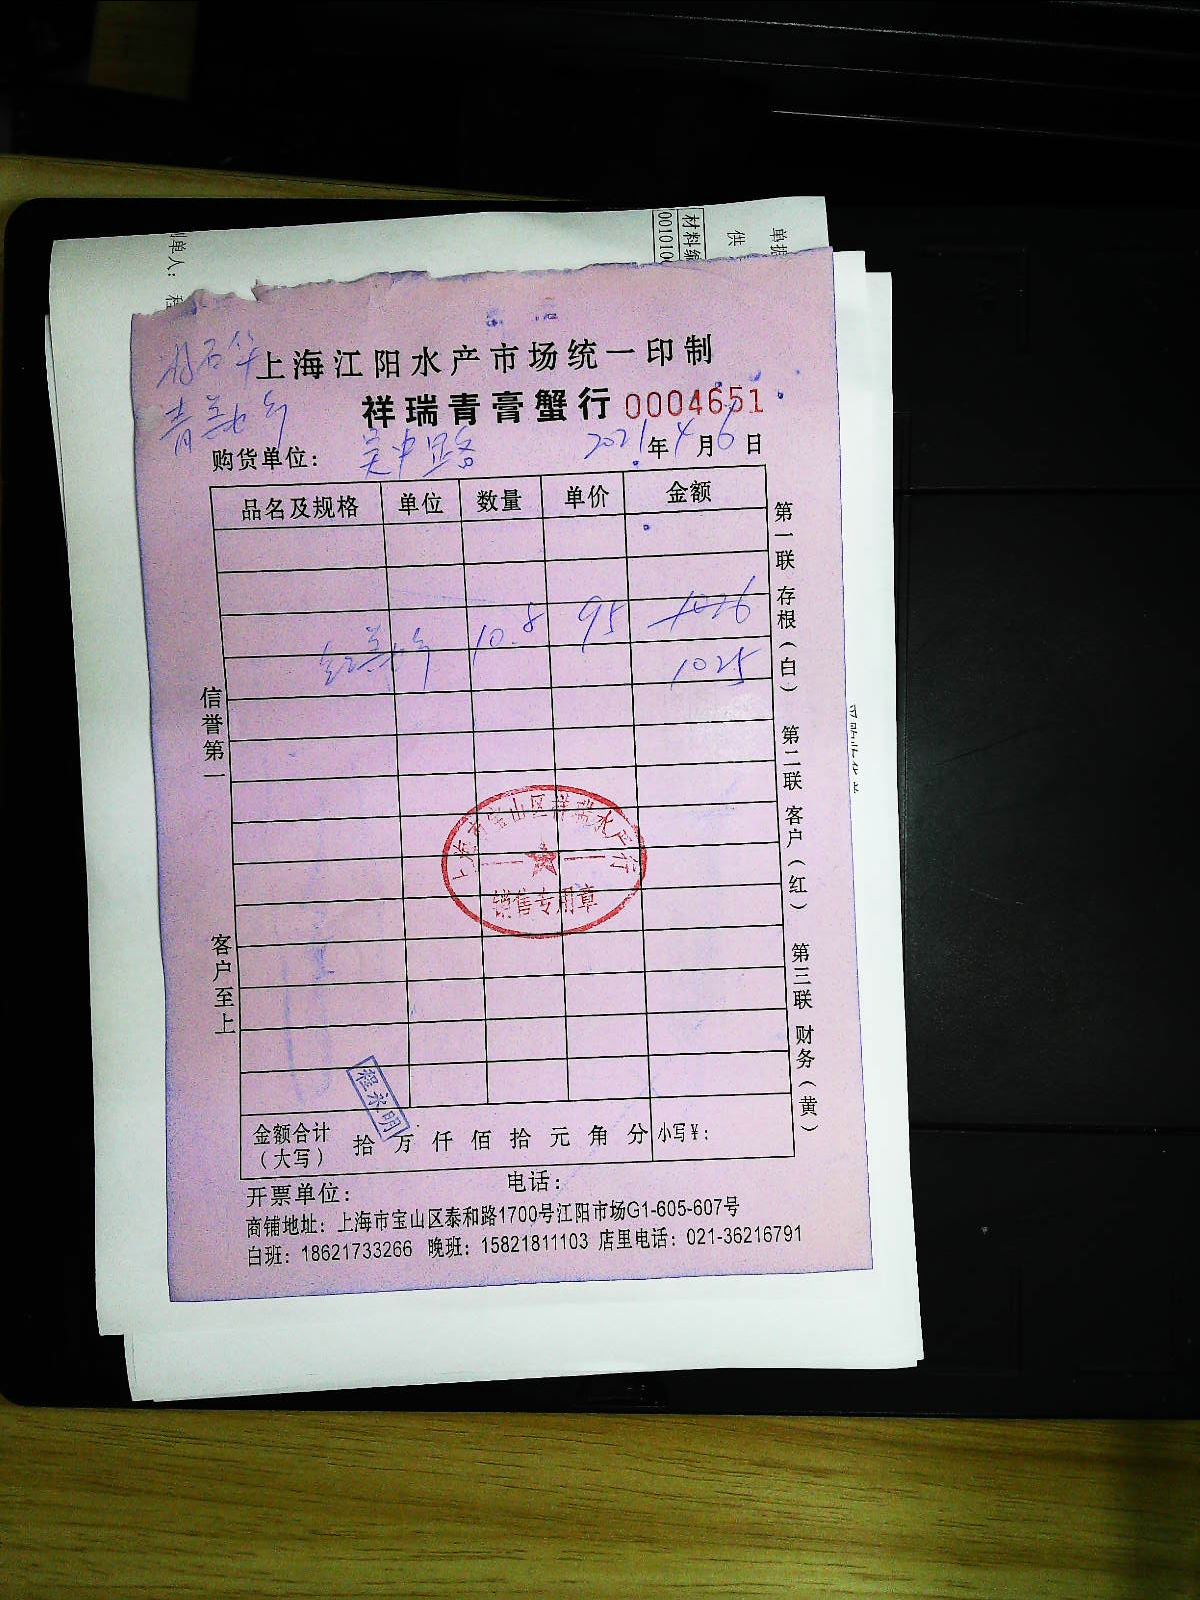 材料编
供
单据
上海江阳水产市场统一印制
祥瑞青膏蟹行 0004651
购货单位: 吴中路 2021年4月6日
品名及规格 单位 数量 单价 金额
10.8 95 1026
1025
信誉第一
客户至上
第一联 存根(白)
第二联 客户(红)
第三联 财务(黄)
上海市宝山区祥瑞水产行
销售专用章
程永明
金额合计(大写) 拾 万 仟 佰 拾 元 角 分 小写¥:
开票单位: 电话:
商铺地址: 上海市宝山区泰和路1700号江阳市场G1-605-607号
白班: 18621733266 晚班: 15821811103 店里电话: 021-36216791